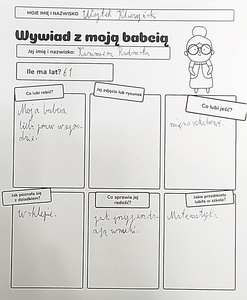 MOJE IMIĘ I NAZWISKO Wojtek
Wywiad z moją babcią
Jej imię i nazwisko: Kazimiera
Ile ma lat? 61
Co lubi robić?
Moja babcia
lubi prace w ogro-
dzie.
Jej zdjęcie lub rysunek
Co lubi jeść?
mięso schabowe.
Jak poznała się
z dziadkiem?
W sklepie.
Co sprawia jej
radość?
jak przyjeżdż-
ają wnuki.
Jakie przedmioty
lubiła w szkole?
Matematykę.